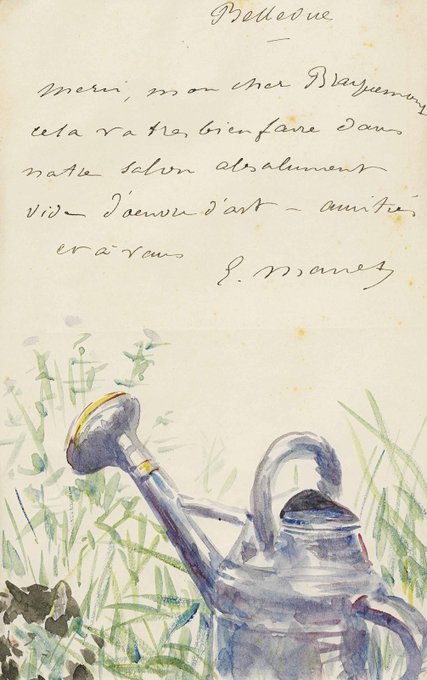 Bellevue
merci, mon cher Bracquemond
cela va tres bien faire dans
notre salon absolument
vide d'oeuvre d'art – amitiés
et à vous
E. Manet